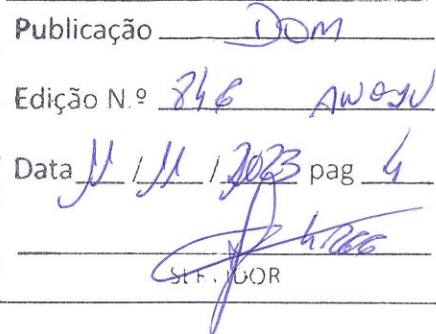 Publicação DOM
Edição N.º 846
Data 11 / 11 / 2023 pag 4